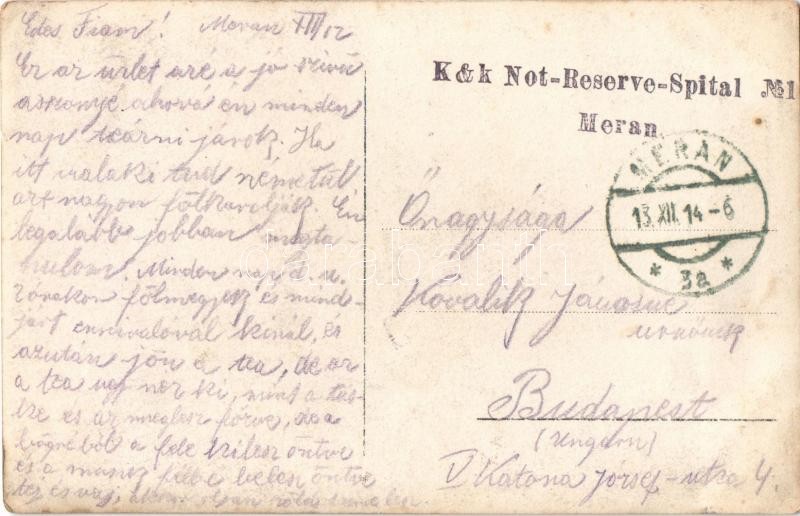 Edes Fiam! Meran XII/12
Ez az üzlet azé a jó szivü
asszonyé ahová én minden
nap teázni járok. Ha
itt valaki tud németül
azt nagyon fölkarolják. Én
legalább jobban megta-
nulom. Minden nap d. u.
órakor fölmegyek és mind-
járt ennivalóval kinál, és
azután jön a tea, de az
a tea ugy néz ki, mint a
és az meglesz főzve, és a
bögréből a fele kilesz öntve
és a másik fele belesz öntve
tej és vaj,
K & k Not-Reserve-Spital №1
Meran
MERAN
13.XII.14-6
* 3a *
Őnagysága
Kovalik Jánosné
urnőnek
Budapest
(Ungarn)
V Katona József-utca 4.